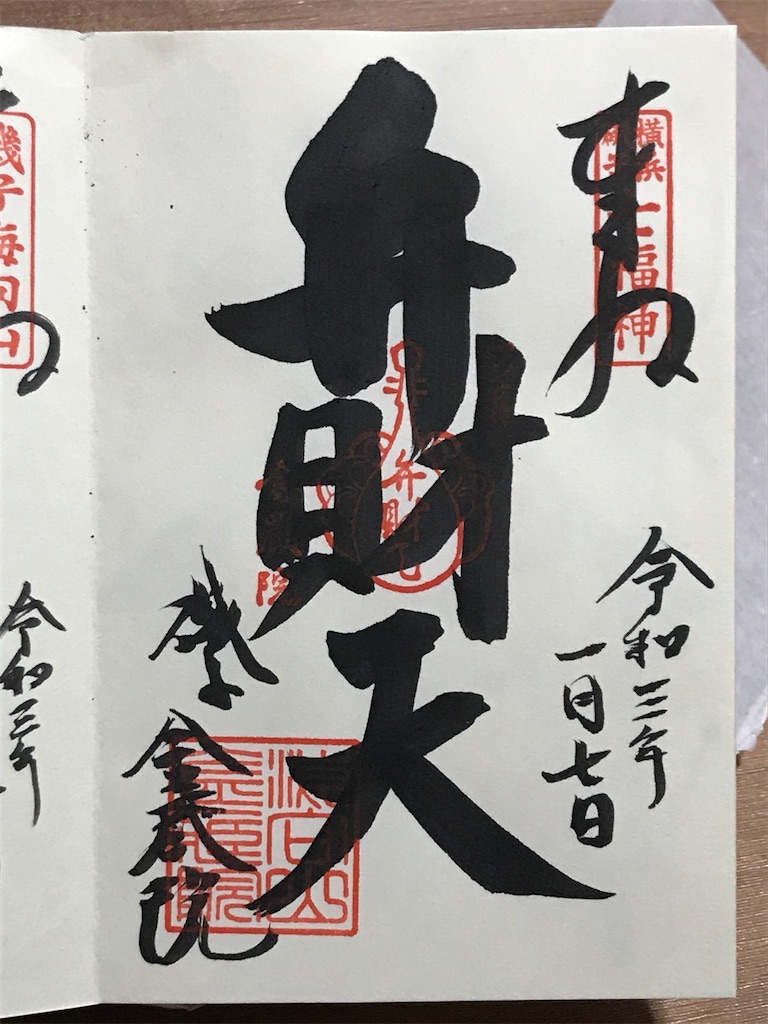 奉拝
横浜
磯子
七福神
令和三年
一月七日
弁財天
弁財天
磯子
金蔵院
令和三年